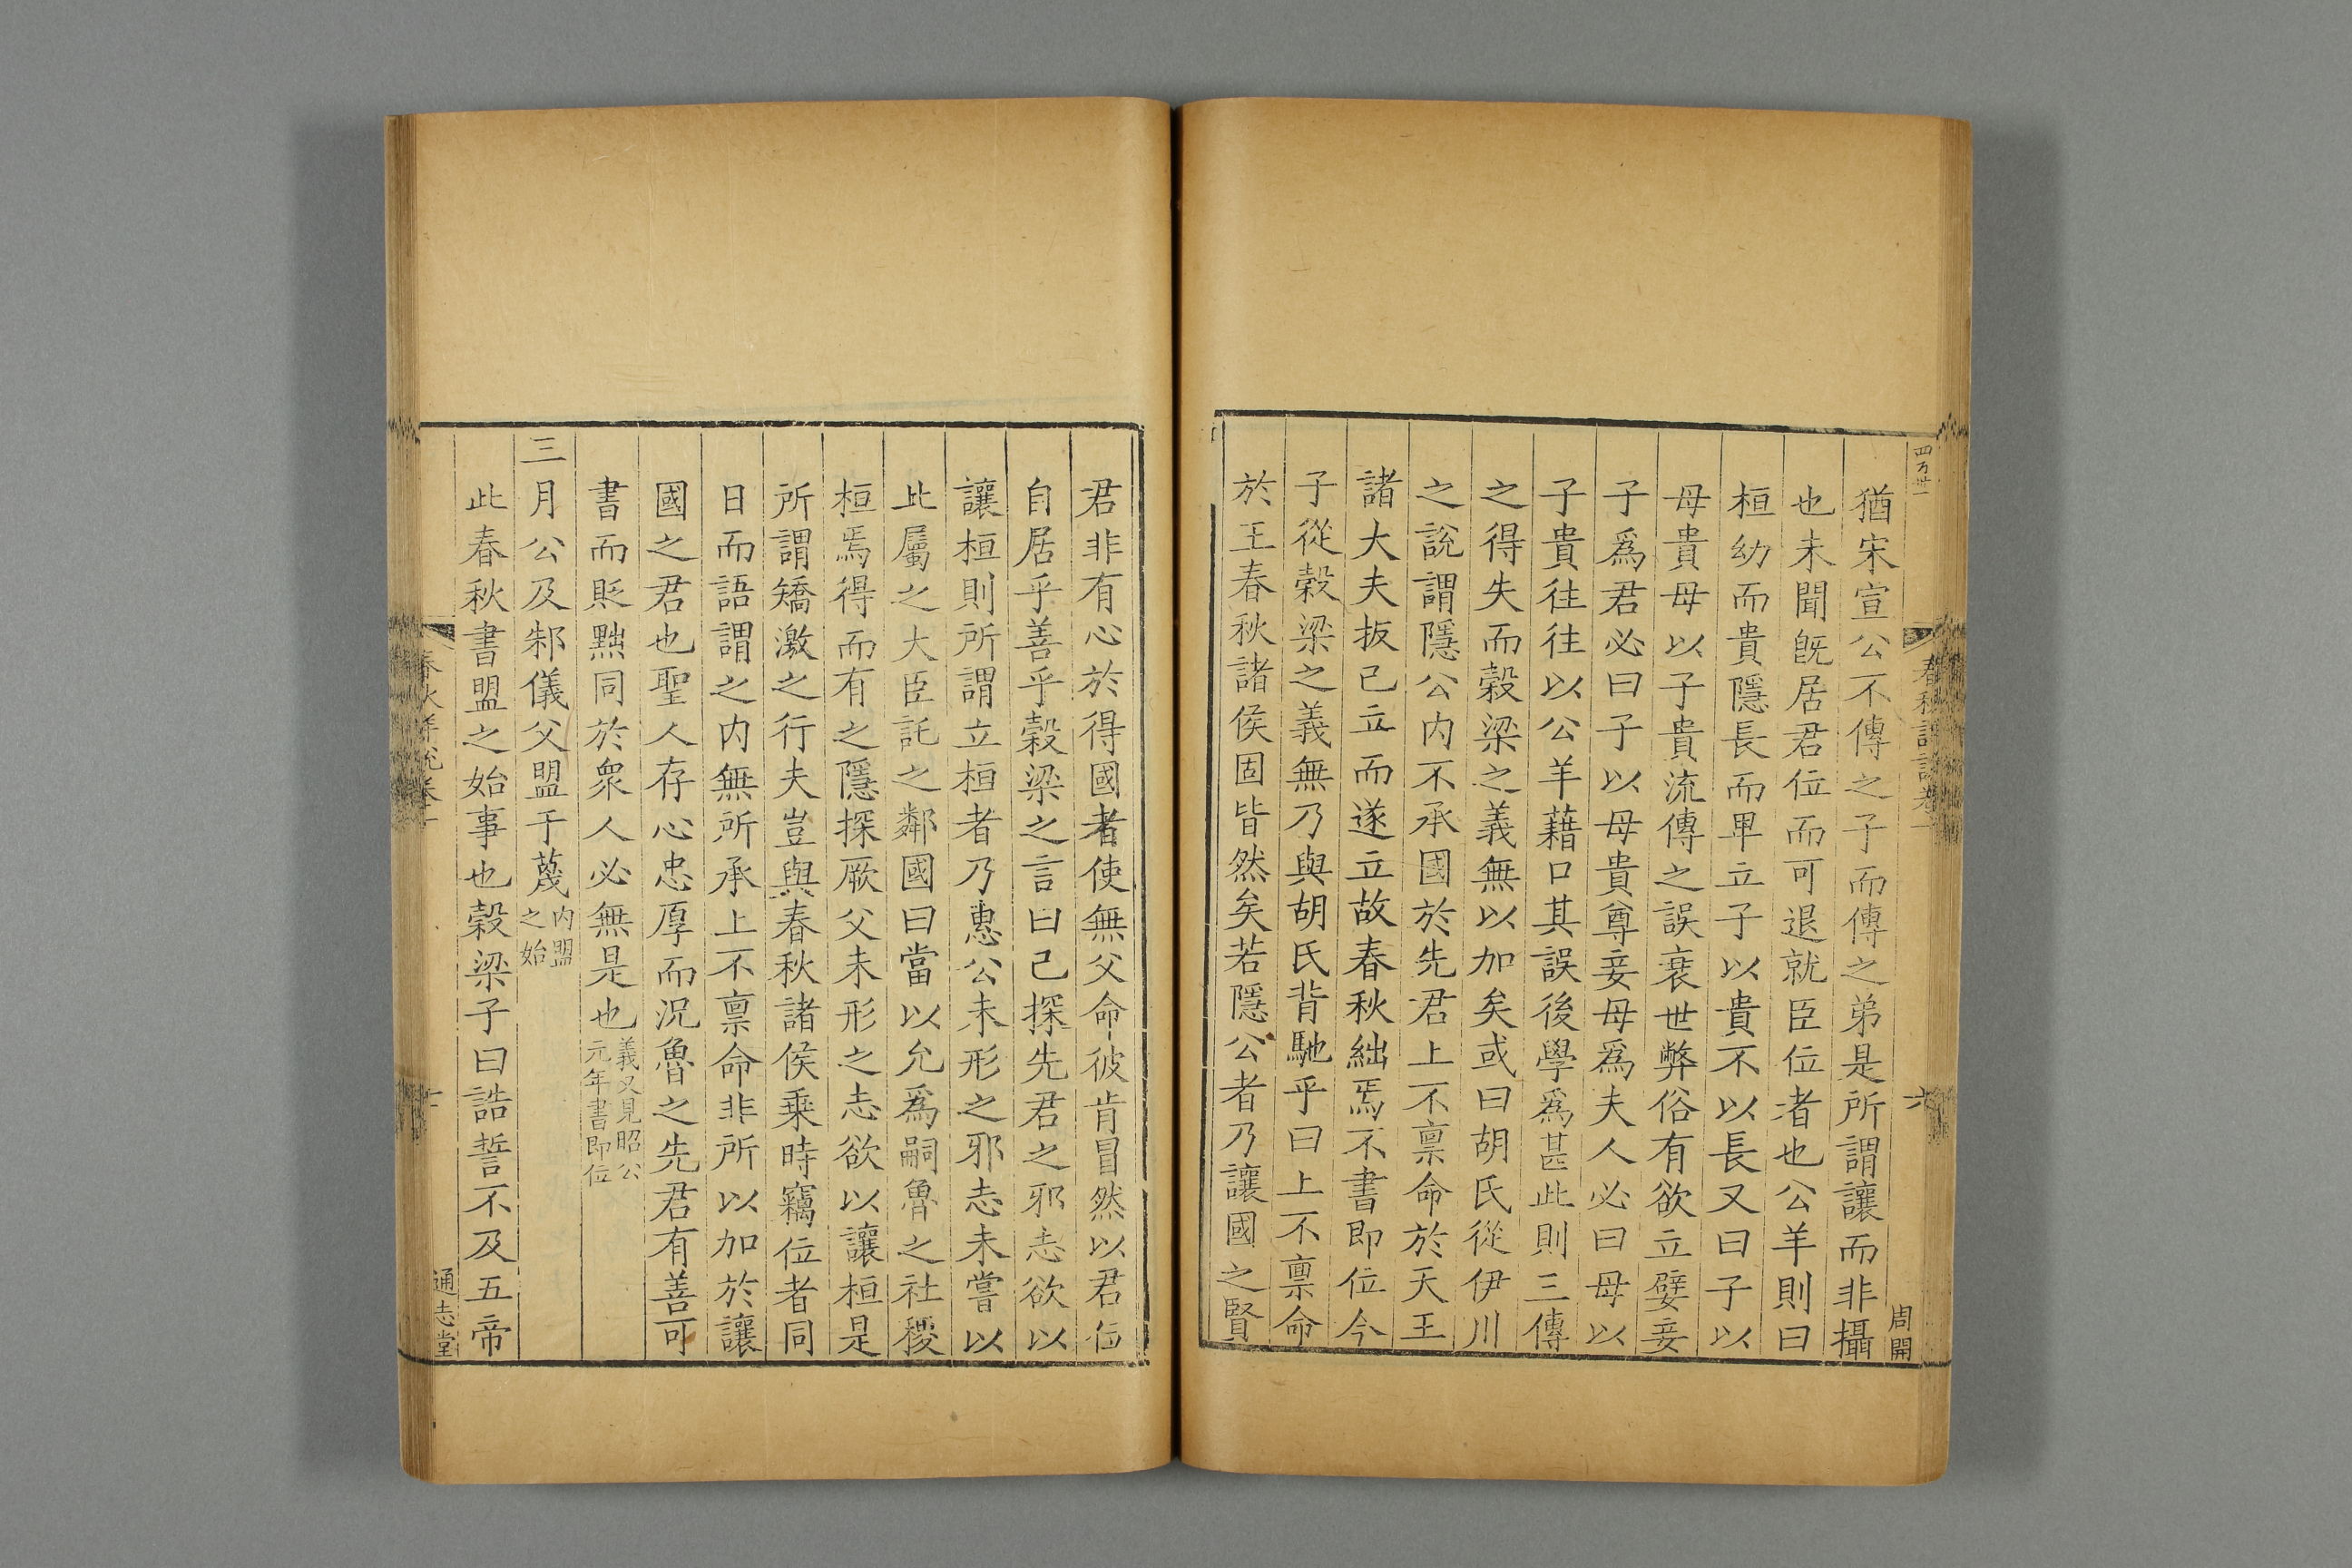 四万卅一
春秋詳說卷一
六
周開
猶宋宣公不傳之子而傳之弟是所謂讓而非攝
也未聞旣居君位而可退就臣位者也公羊則曰
桓幼而貴隱長而卑立子以貴不以長又曰子以
母貴母以子貴流傳之誤衰世弊俗有欲立嬖妾
子爲君必曰子以母貴尊妾母爲夫人必曰母以
子貴往往以公羊藉口其誤後學爲甚此則三傳
之得失而穀梁之義無以加矣或曰胡氏從伊川
之說謂隱公内不承國於先君上不禀命於天王
諸大夫扳已立而遂立故春秋絀焉不書即位今
子從穀梁之義無乃與胡氏背馳乎曰上不禀命
於王春秋諸侯固皆然矣若隱公者乃讓國之賢
君非有心於得國者使無父命彼肯冒然以君位
自居乎善乎穀梁之言曰己探先君之邪志欲以
讓桓則所謂立桓者乃惠公未形之邪志未嘗以
此屬之大臣託之鄰國曰當以允爲嗣魯之社稷
桓焉得而有之隱探厥父未形之志欲以讓桓是
所謂矯激之行夫豈與春秋諸侯乗時竊位者同
日而語謂之内無所承上不禀命非所以加於讓
國之君也聖人存心忠厚而況魯之先君有善可
書而貶黜同於衆人必無是也義又見昭公
元年書即位
三月公及邾儀父盟于蔑内盟
之始
此春秋書盟之始事也穀梁子曰誥誓不及五帝
春秋詳說卷一
通志堂